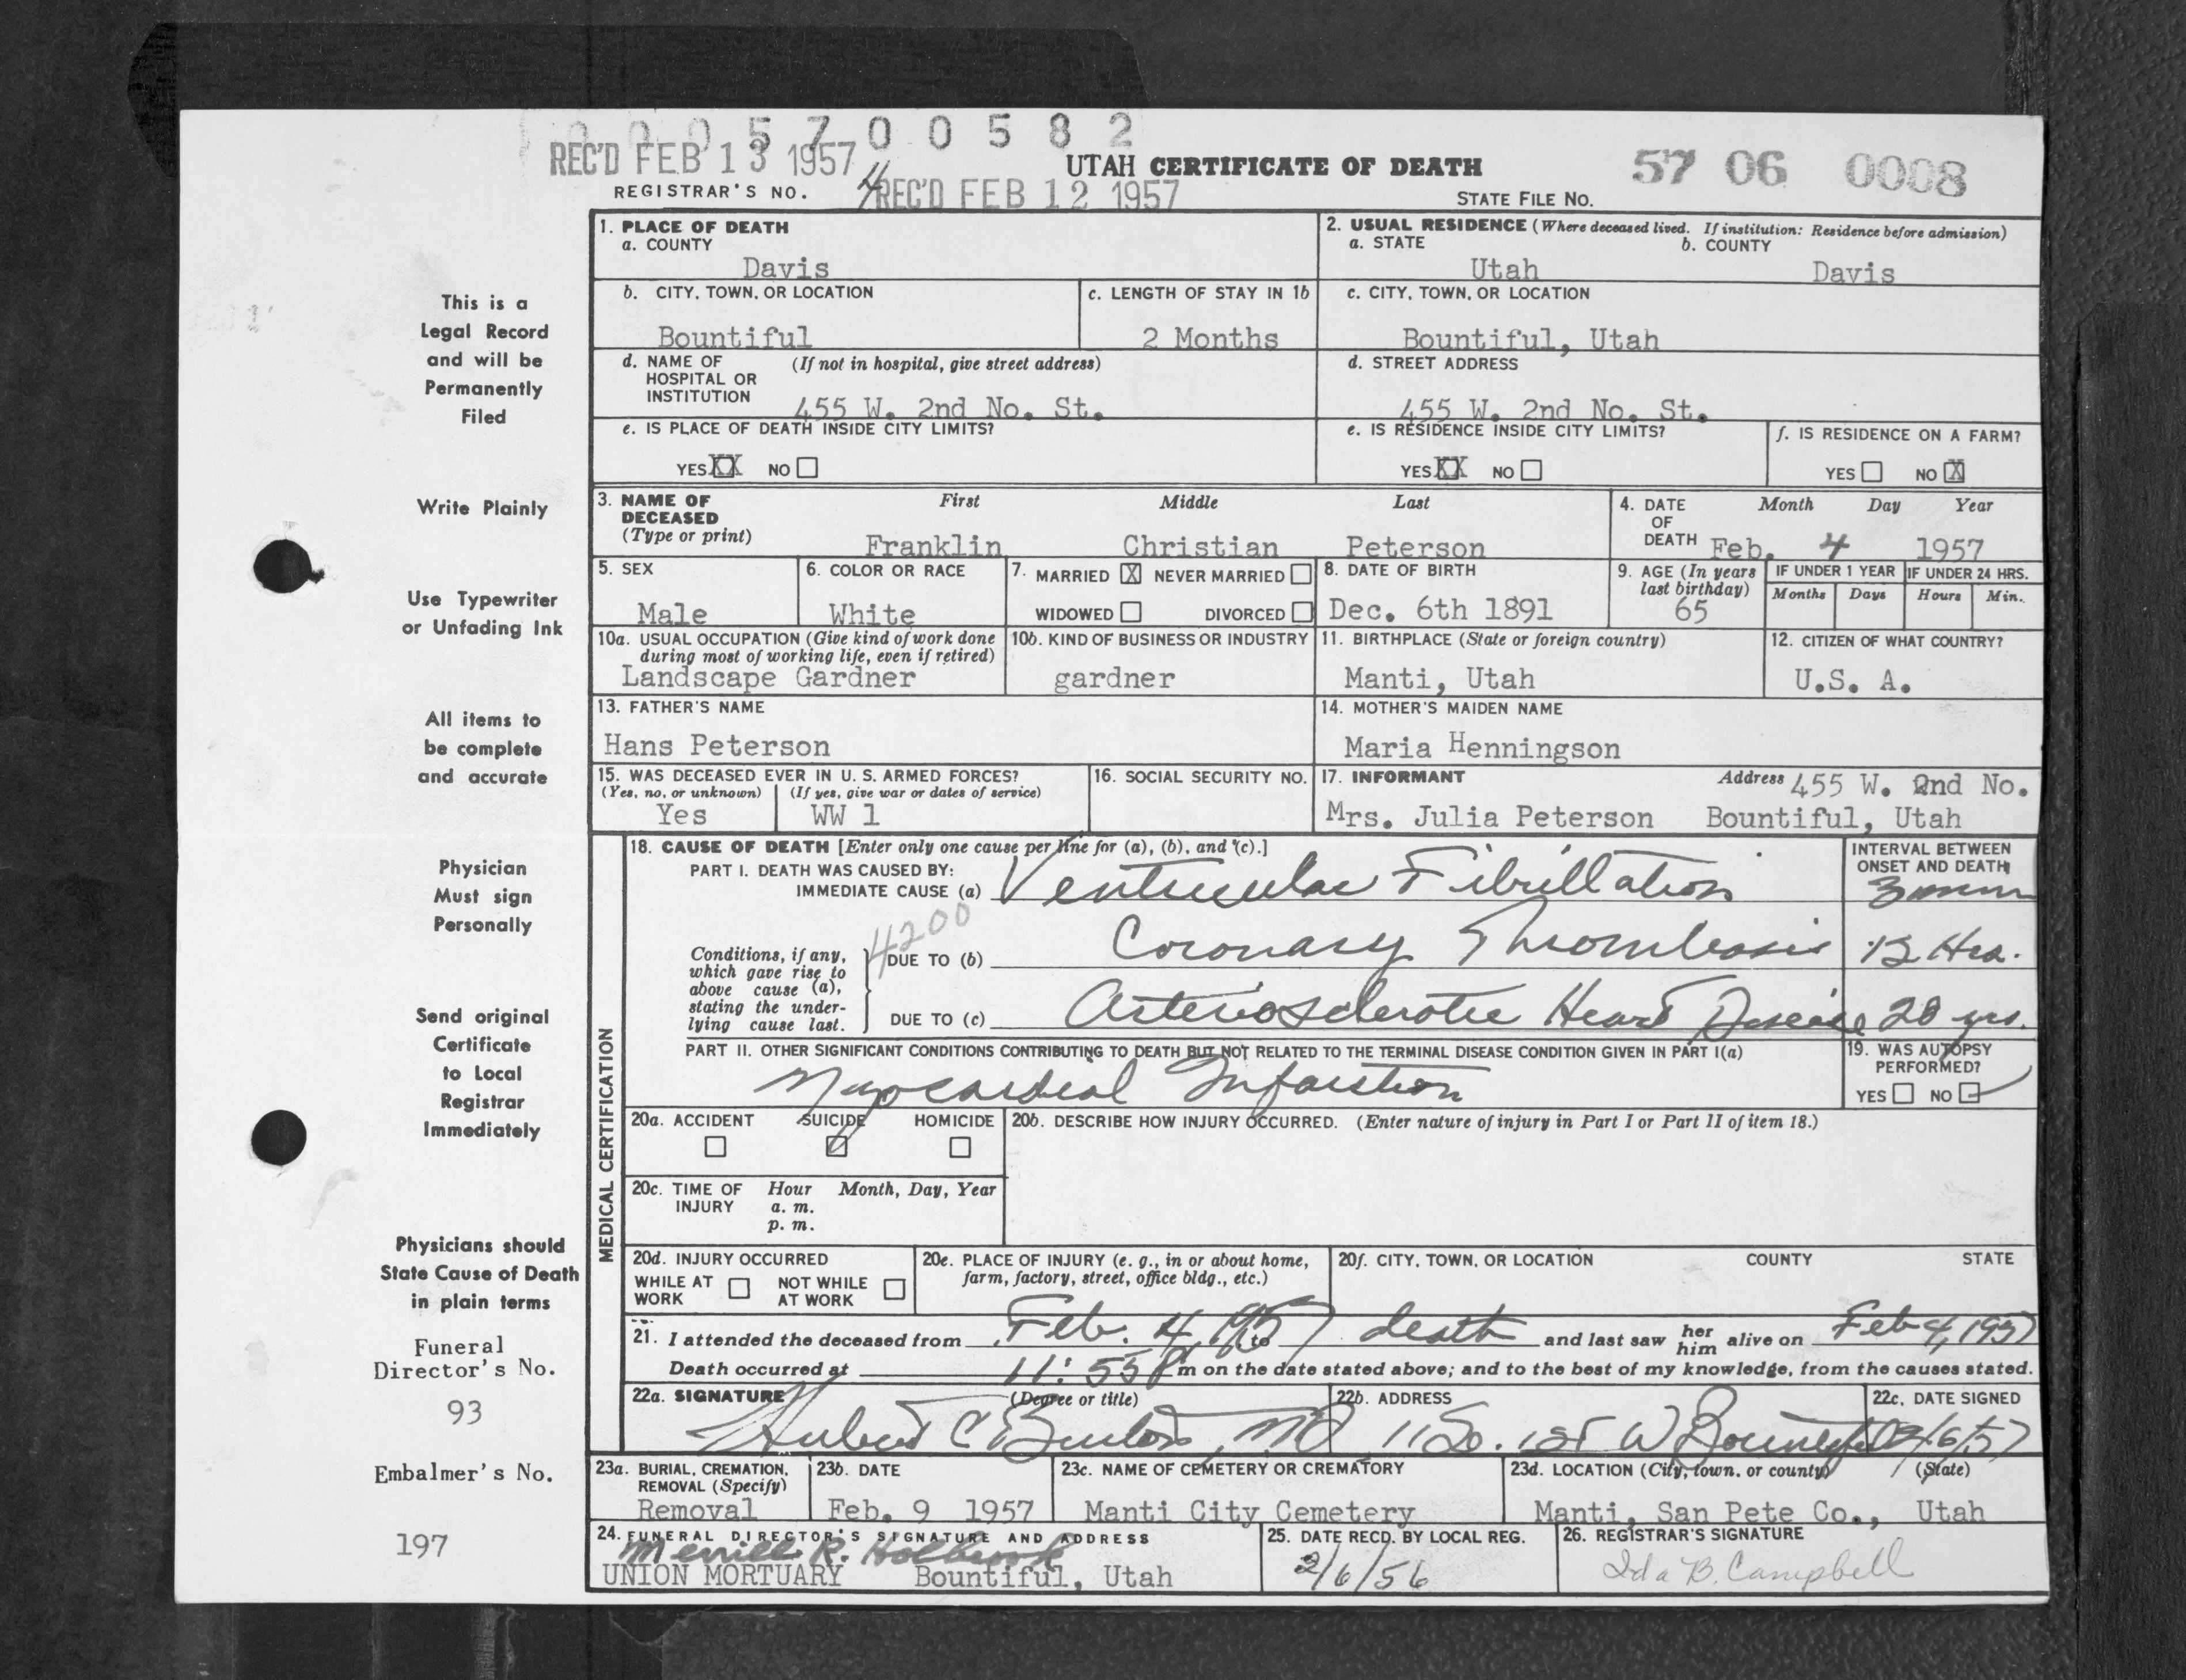 0005700582
REC'D FEB 13 1957
UTAH CERTIFICATE OF DEATH
57 06 0008
REGISTRAR'S NO. 4 REC'D FEB 12 1957
STATE FILE NO.
1. PLACE OF DEATH
a. COUNTY
Davis
2. USUAL RESIDENCE (Where deceased lived. If institution: Residence before admission)
a. STATE b. COUNTY
Utah Davis
b. CITY, TOWN, OR LOCATION
Bountiful
c. LENGTH OF STAY IN 1b
2 Months
c. CITY, TOWN, OR LOCATION
Bountiful, Utah
d. NAME OF (If not in hospital, give street address)
HOSPITAL OR
INSTITUTION
455 W. 2nd No. St.
d. STREET ADDRESS
455 W. 2nd No. St.
e. IS PLACE OF DEATH INSIDE CITY LIMITS?
YES XX NO
e. IS RESIDENCE INSIDE CITY LIMITS?
YES XX NO
f. IS RESIDENCE ON A FARM?
YES NO X
3. NAME OF First Middle Last
DECEASED
(Type or print)
Franklin Christian Peterson
4. DATE Month Day Year
OF
DEATH Feb. 4 1957
5. SEX
Male
6. COLOR OR RACE
White
7. MARRIED X NEVER MARRIED
WIDOWED DIVORCED
8. DATE OF BIRTH
Dec. 6th 1891
9. AGE (In years
last birthday)
65
IF UNDER 1 YEAR
Months Days
IF UNDER 24 HRS.
Hours Min.
10a. USUAL OCCUPATION (Give kind of work done
during most of working life, even if retired)
Landscape Gardner
10b. KIND OF BUSINESS OR INDUSTRY
gardner
11. BIRTHPLACE (State or foreign country)
Manti, Utah
12. CITIZEN OF WHAT COUNTRY?
U.S. A.
13. FATHER'S NAME
Hans Peterson
14. MOTHER'S MAIDEN NAME
Maria Henningson
15. WAS DECEASED EVER IN U. S. ARMED FORCES?
(Yes, no, or unknown) (If yes, give war or dates of service)
Yes WW 1
16. SOCIAL SECURITY NO.
17. INFORMANT Address 455 W. 2nd No.
Mrs. Julia Peterson Bountiful, Utah
MEDICAL CERTIFICATION
18. CAUSE OF DEATH [Enter only one cause per line for (a), (b), and (c).]
INTERVAL BETWEEN
ONSET AND DEATH
PART I. DEATH WAS CAUSED BY:
IMMEDIATE CAUSE (a) Ventricular Fibrillation 3
4200
Conditions, if any,
which gave rise to
above cause (a),
stating the under-
lying cause last.
DUE TO (b) Coronary Thrombosis 12 Hrs.
DUE TO (c) Arteriosclerotic Heart Disease 20 yrs.
PART II. OTHER SIGNIFICANT CONDITIONS CONTRIBUTING TO DEATH BUT NOT RELATED TO THE TERMINAL DISEASE CONDITION GIVEN IN PART I(a)
Myocardial Infarction
19. WAS AUTOPSY
PERFORMED?
YES NO
20a. ACCIDENT SUICIDE HOMICIDE
20b. DESCRIBE HOW INJURY OCCURRED. (Enter nature of injury in Part I or Part II of item 18.)
20c. TIME OF Hour Month, Day, Year
INJURY a. m.
p. m.
20d. INJURY OCCURRED
WHILE AT NOT WHILE
WORK AT WORK
20e. PLACE OF INJURY (e. g., in or about home,
farm, factory, street, office bldg., etc.)
20f. CITY, TOWN, OR LOCATION COUNTY STATE
21. I attended the deceased from Feb. 4, 1957 to death and last saw her him alive on Feb 4, 1957
Death occurred at 11:55 P m on the date stated above; and to the best of my knowledge, from the causes stated.
22a. SIGNATURE (Degree or title)
C MD
22b. ADDRESS
11 So. 1st W Bountiful
22c. DATE SIGNED
2/6/57
23a. BURIAL, CREMATION,
REMOVAL (Specify)
Removal
23b. DATE
Feb. 9 1957
23c. NAME OF CEMETERY OR CREMATORY
Manti City Cemetery
23d. LOCATION (City, town, or county) (State)
Manti, San Pete Co., Utah
24. FUNERAL DIRECTOR'S SIGNATURE AND ADDRESS
Merrill R. Holbrook
UNION MORTUARY Bountiful, Utah
25. DATE RECD. BY LOCAL REG.
2/6/56
26. REGISTRAR'S SIGNATURE
Ida B. Campbell
This is a
Legal Record
and will be
Permanently
Filed
Write Plainly
Use Typewriter
or Unfading Ink
All items to
be complete
and accurate
Physician
Must sign
Personally
Send original
Certificate
to Local
Registrar
Immediately
Physicians should
State Cause of Death
in plain terms
Funeral
Director's No.
93
Embalmer's No.
197